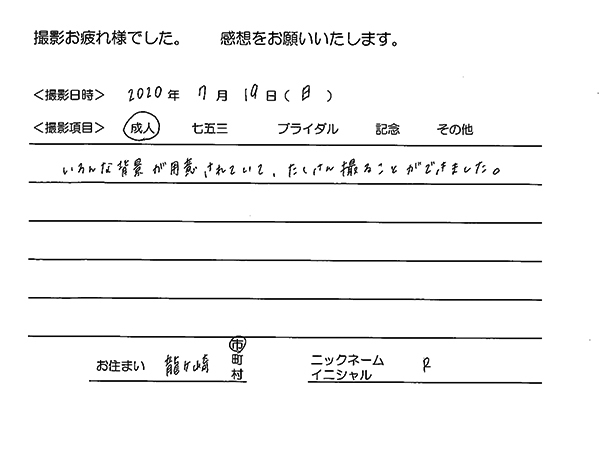 撮影お疲れ様でした。 感想をお願いいたします。
＜撮影日時＞ 2020年 7月 19日(日)
＜撮影項目＞ 成人 七五三 ブライダル 記念 その他
いろんな背景が用意されていて、たくさん撮ることができました。
お住まい 龍ヶ崎 市
町
村
ニックネーム
イニシャル R